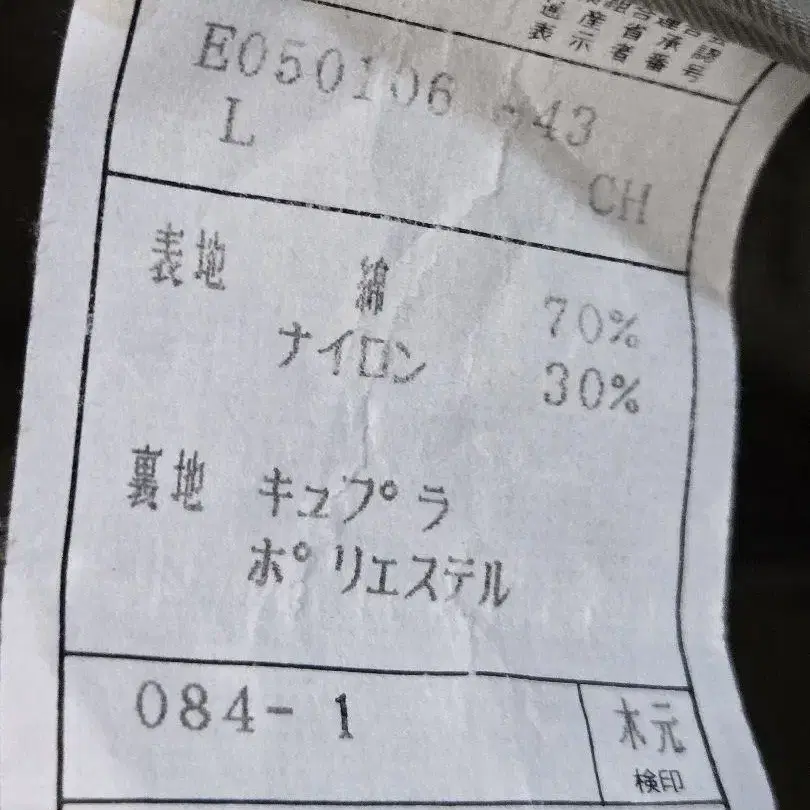 表示者番号
E050106 -43
L
CH
表地 綿 70%
ナイロン 30%
裏地 キュプラ
ポリエステル
084- 1
木元
検印